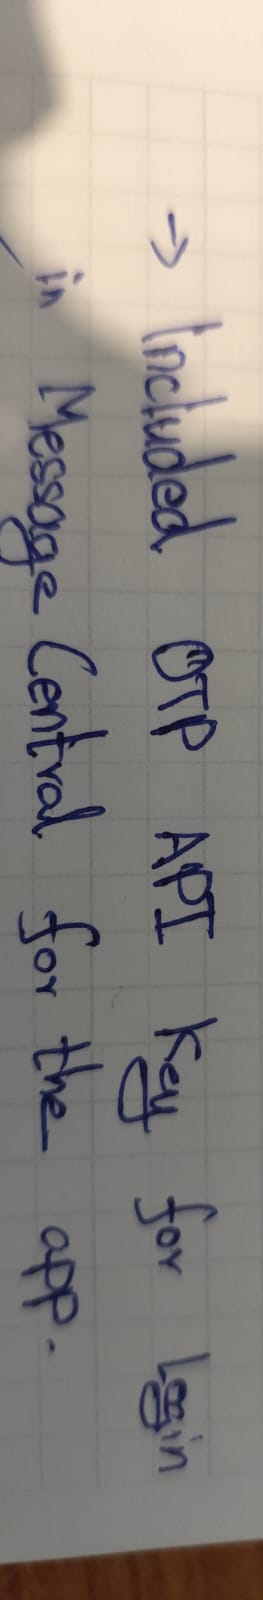 → Included OTP API Key for Login
in Message Central for the app.